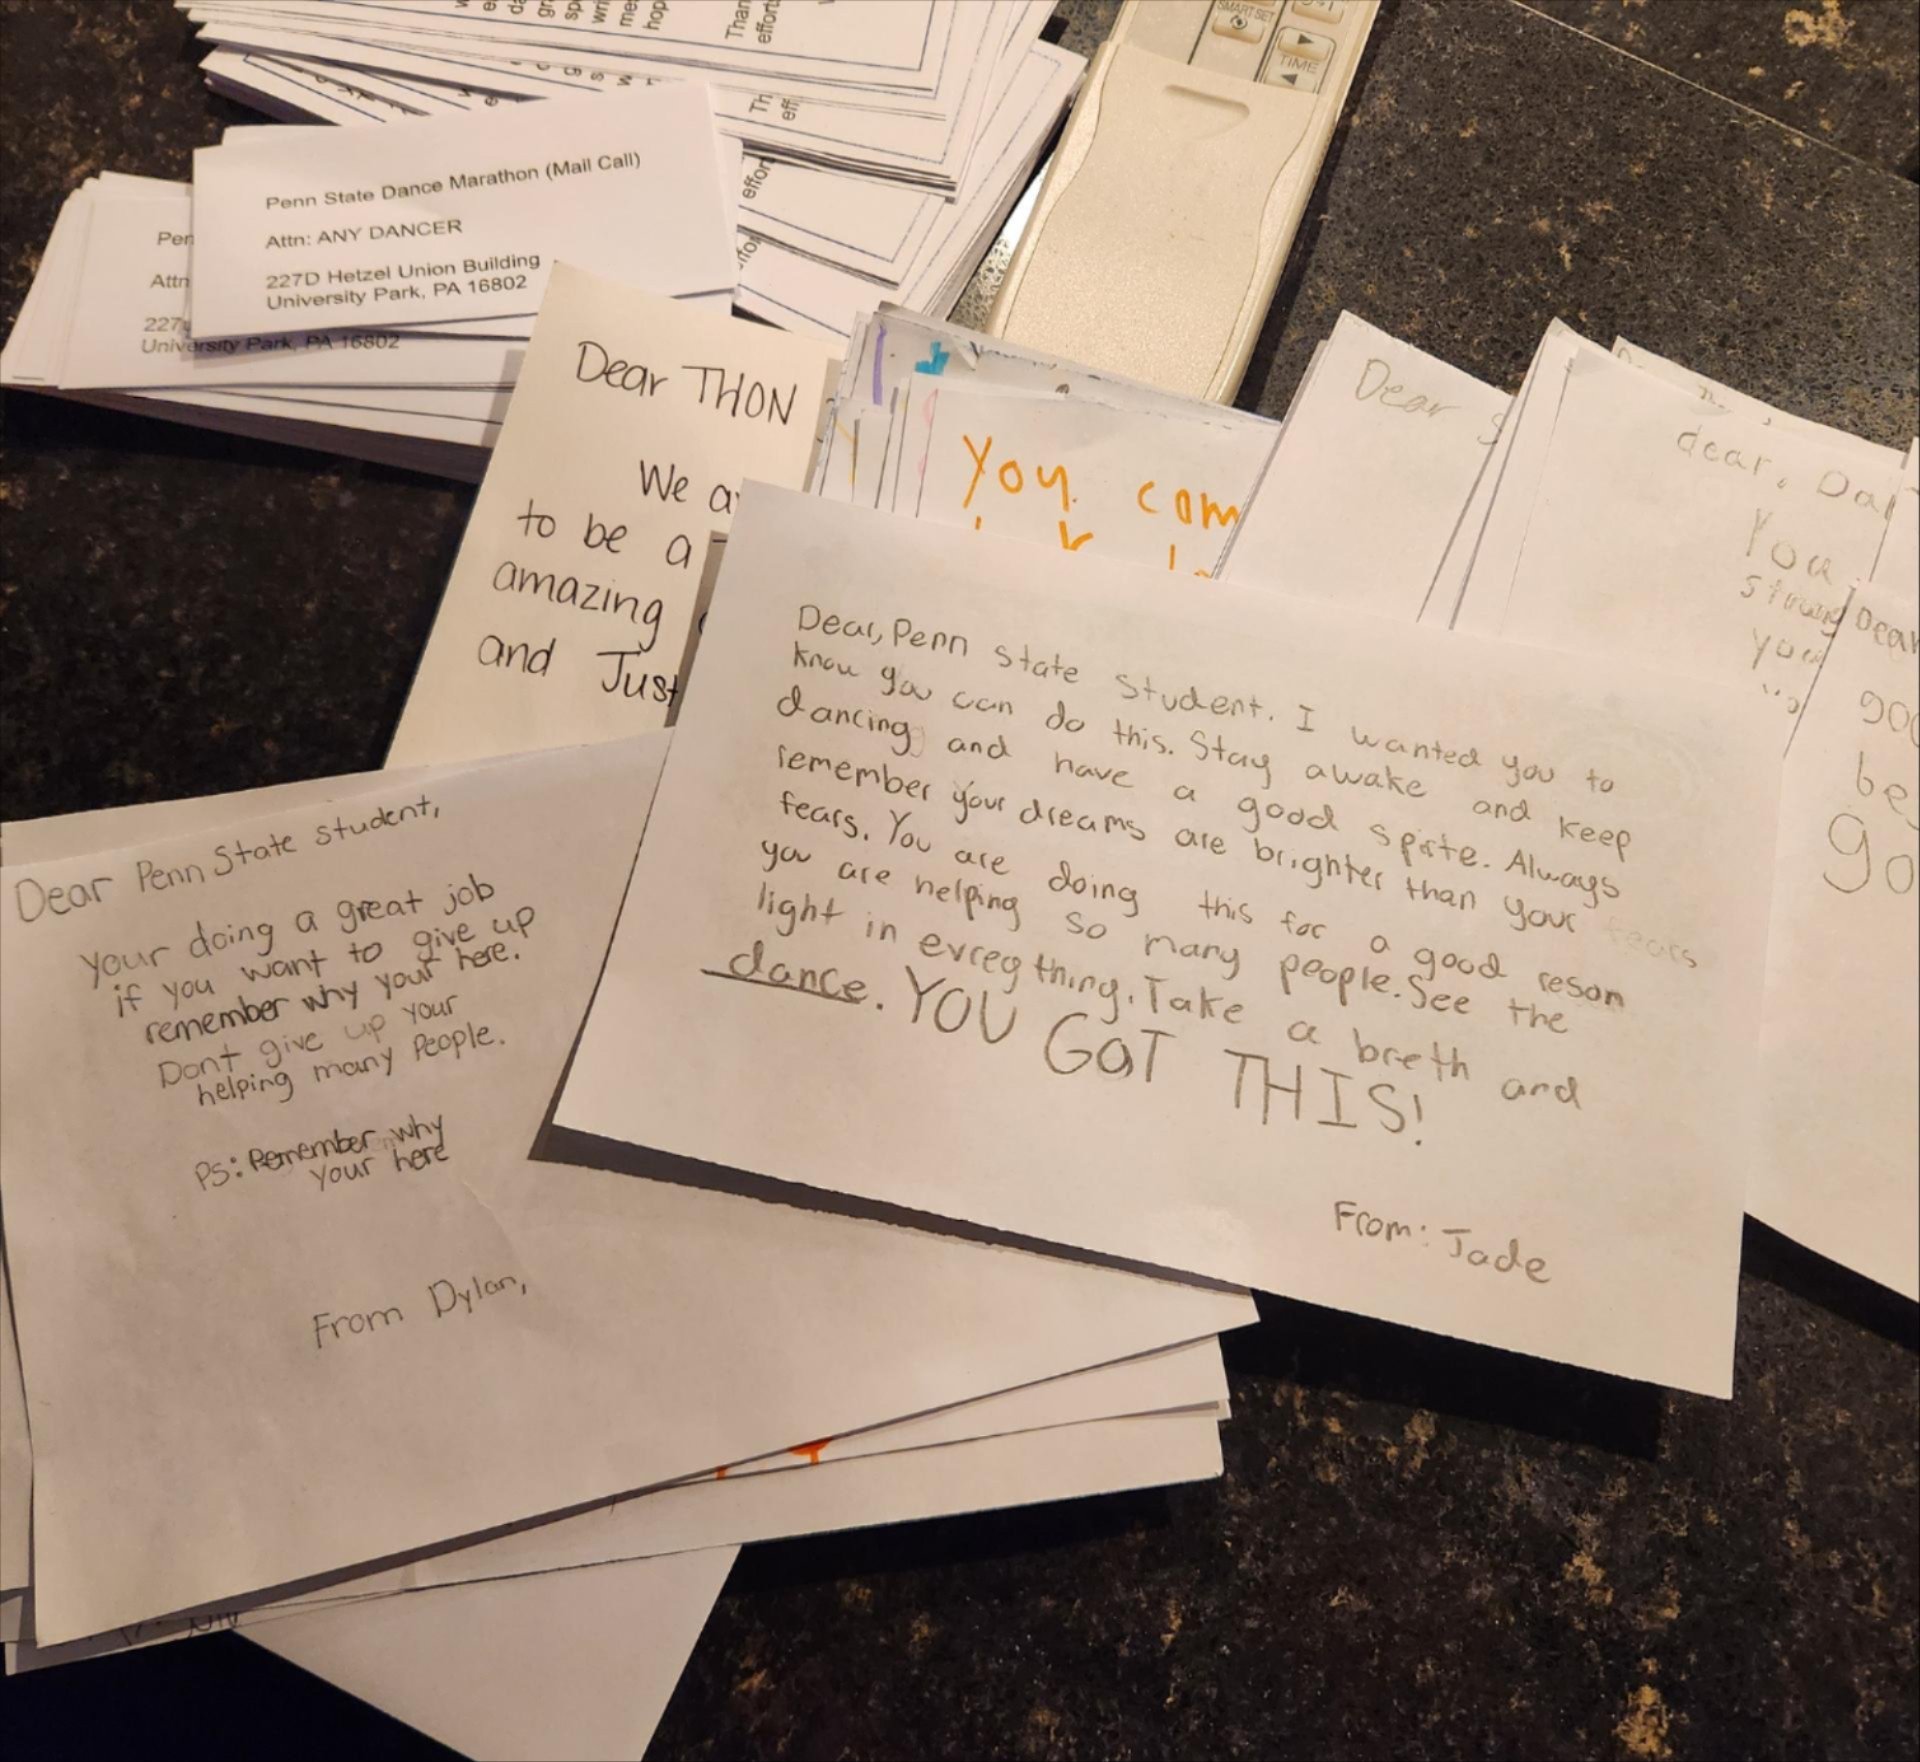 SMART SET
TIME
Penn State Dance Marathon (Mail Call)
Attn: ANY DANCER
227D Hetzel Union Building
University Park, PA 16802
Attn
University Park, PA 16802
Dear THON
We
to be a
amazing
and Just
You com
Dear
dear,
You
strong
you
Dear
Dear, Penn State Student. I wanted you to
know you can do this. Stay awake and keep
dancing and have a good spirte. Always
remember your dreams are brighter than your fears
fears. You are doing this for a good reson
you are helping so many people. See the
light in evregthing. Take a breth and
dance. YOU GOT THIS!
From: Jade
Dear Penn State student,
your doing a great job
if you want to give up
remember why your here.
Dont give up your
helping many People.
PS: Remember why
your here
From Dylan,